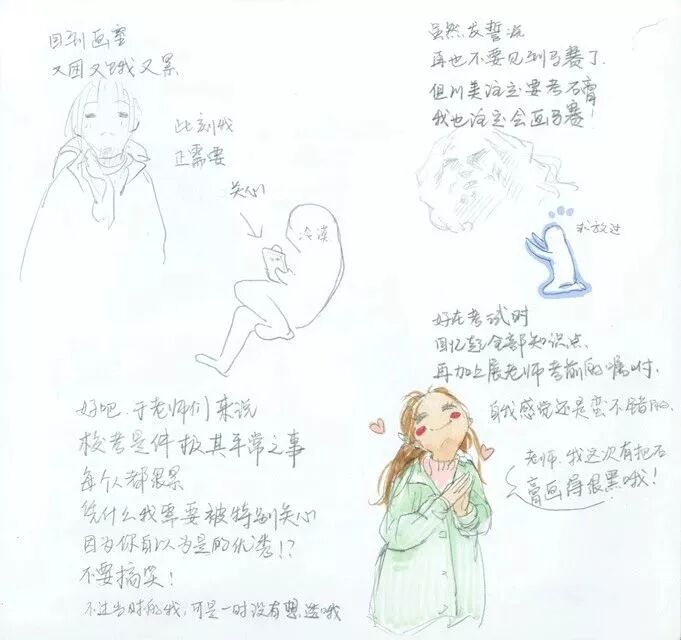 回到画室
又困又饿又累
此刻我
正需要
关心
冷漠
好吧,于老师们来说
校考是件极其平常之事
每个人都很累
凭什么我需要被特别关心
因为你自以为是的优秀!?
不要搞笑!
不过当时的我,可是一时没有想透哦
虽然发誓说
再也不要见到马赛了.
但川美注定要考石膏
我也注定会画马赛!
求放过
好在考试时
回忆起全部知识点.
再加上展老师考前的嘱咐.
自我感觉还是蛮不错的.
老师,我这次有把石
膏画得很黑哦!